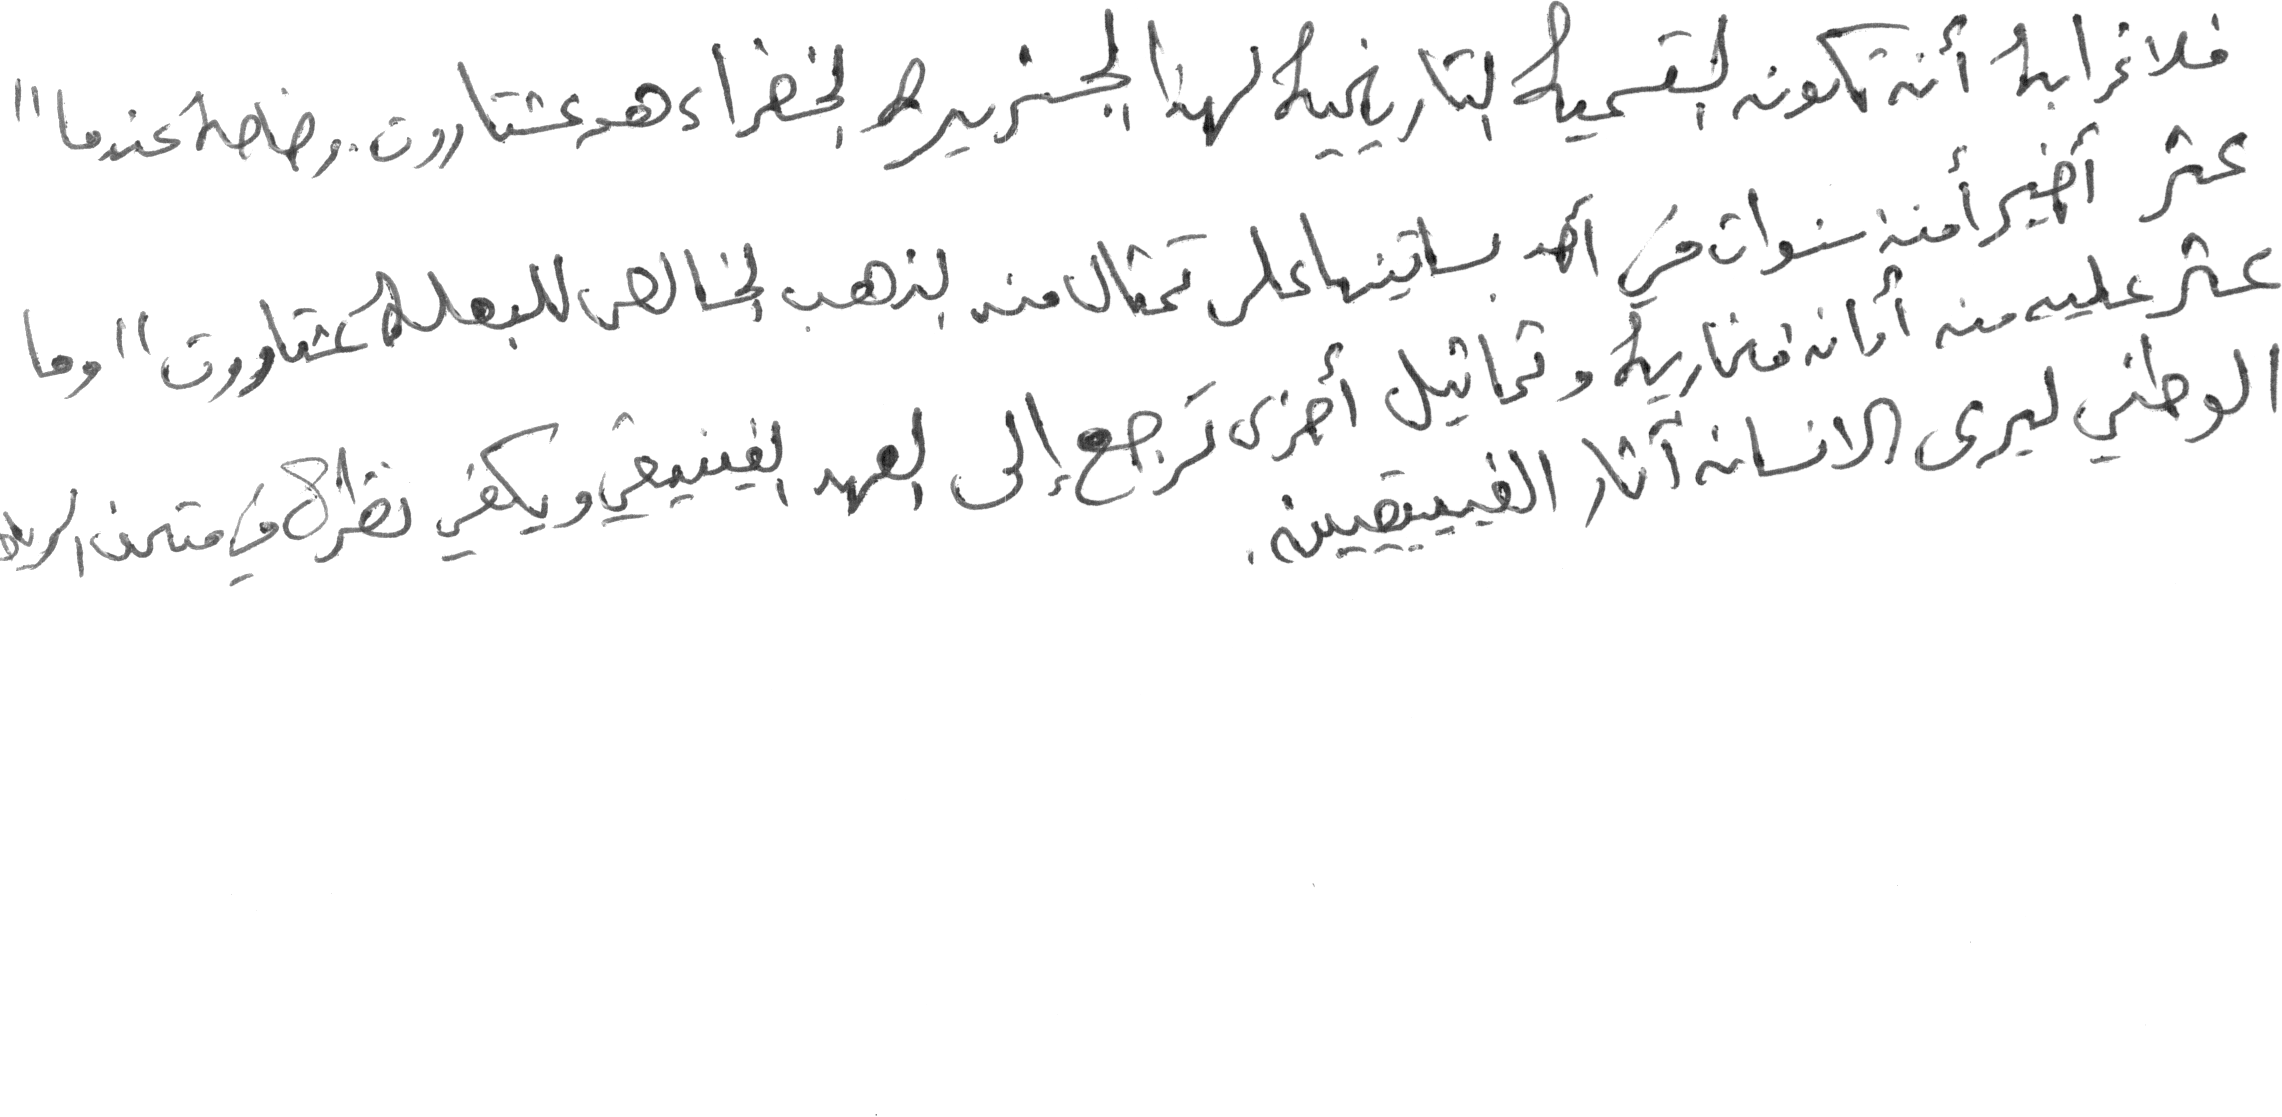 فلا غرابة أن تكون التسمية التاريخية لهذا الجزيرة الخضراء هو عشتاروت. وخاصة عندما "
عثر أخيراً منذ سنوات في أحد بساتينها على تمثال من الذهب الخالص للبعلة عشتاروت " وما
عثر عليه من أوان فخارية وتماثيل أخرى ترجع إلى العهد الفينيقي ويكفي نظرة في متحف
الوطني ليرى الانسان آثار الفينيقيين .